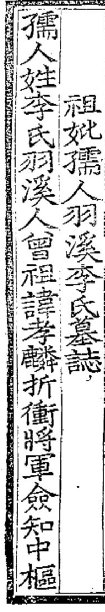 祖妣孺人羽溪李氏墓誌
孺人姓李氏羽溪人曾祖諱孝麟折衝將軍僉知中樞